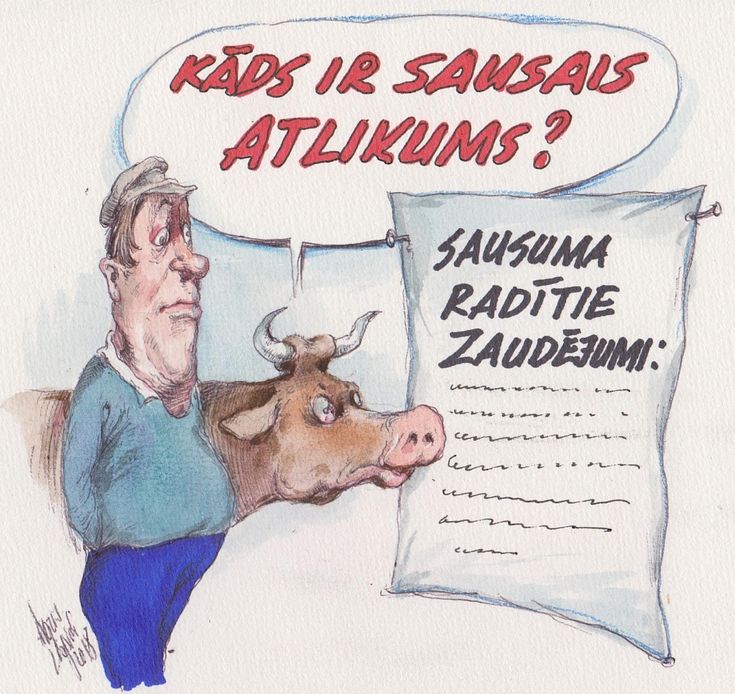 KĀDS IR SAUSAIS
ATLIKUMS?
SAUSUMA
RADĪTIE
ZAUDĒJUMI: